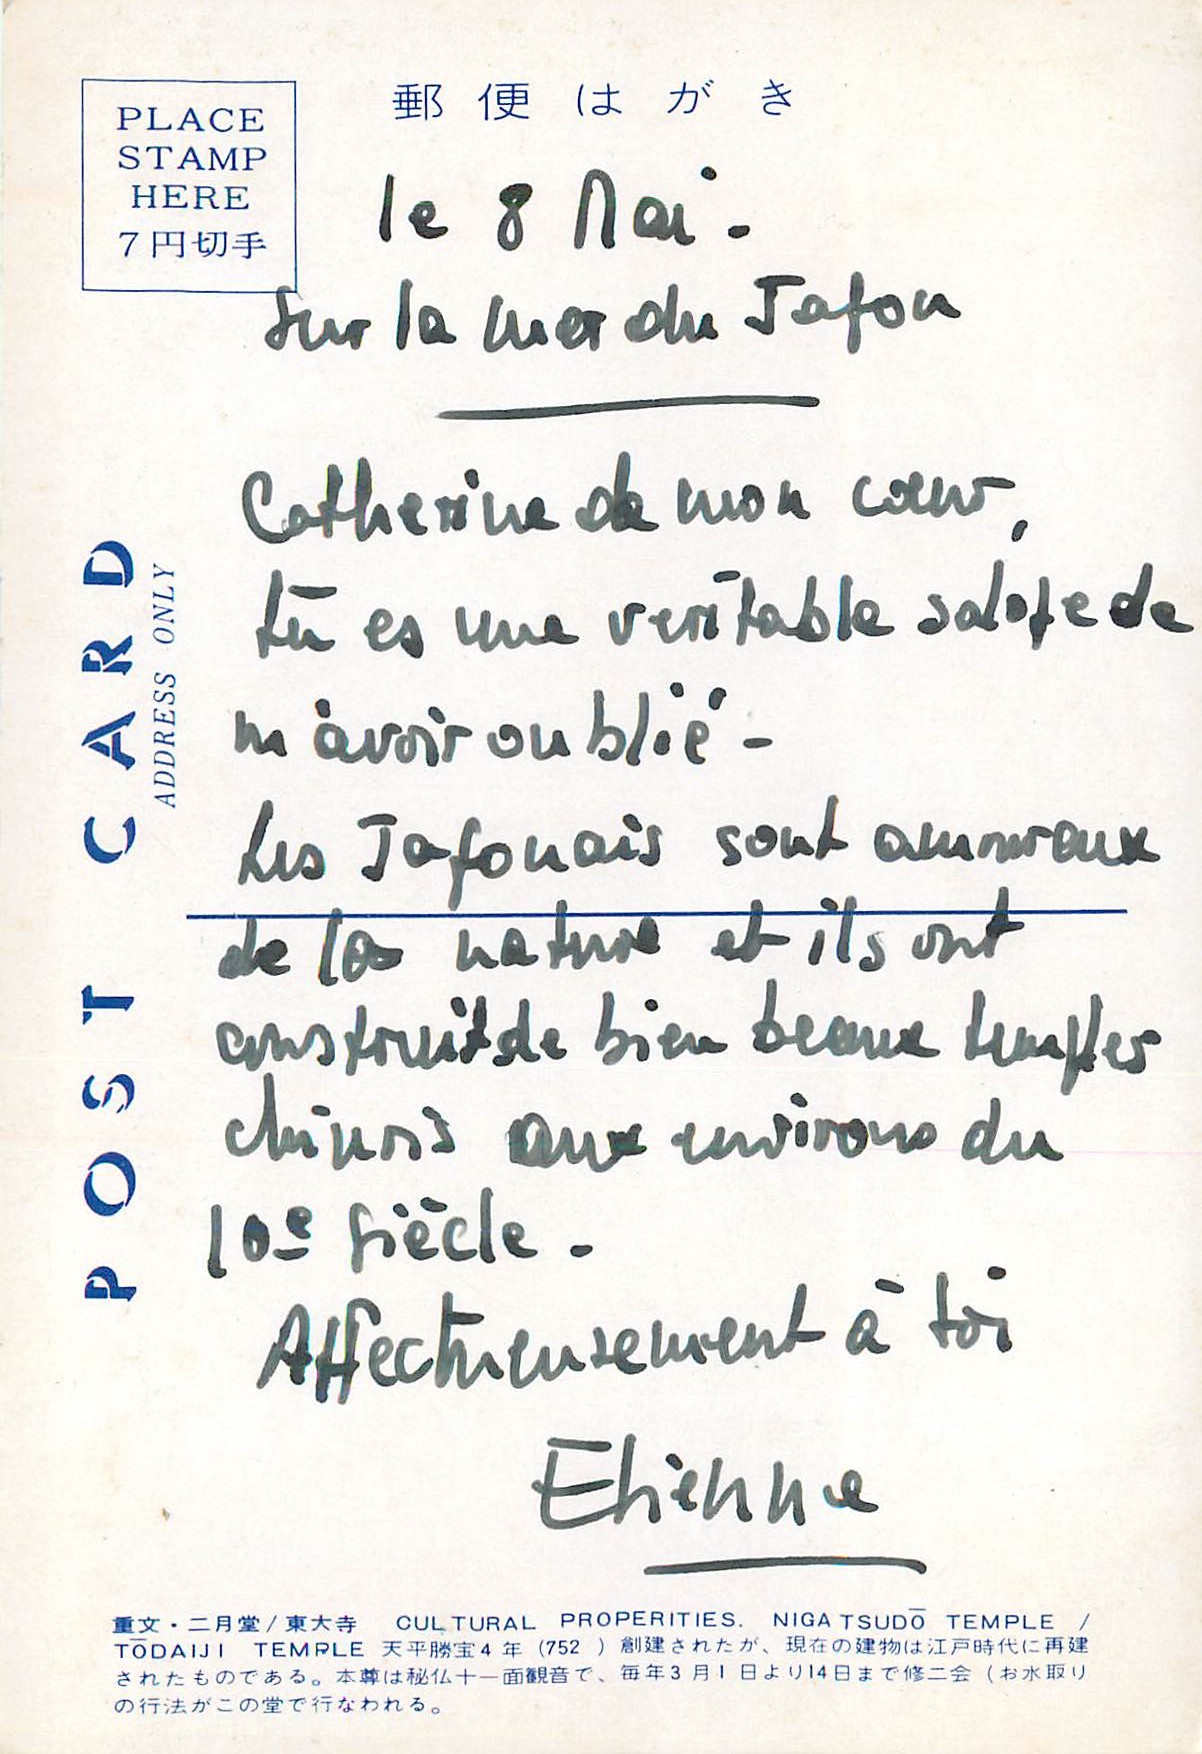 郵便はがき
PLACE
STAMP
HERE
7円切手
le 8 Mai.
Sur la mer du Japon
Catherine de mon cœur,
tu es une veritable salope de
m'avoir oublié -
Les Japonais sont amoureux
de la nature et ils ont
construit de bien beaux temples
chinois aux environs du
10e siècle.
Affectueusement à toi
Etienne
POST CARD
ADDRESS ONLY
重文・二月堂/東大寺 CULTURAL PROPERITIES. NIGATSUDŌ TEMPLE /
TŌDAIJI TEMPLE 天平勝宝4年(752 )創建されたが、現在の建物は江戸時代に再建
されたものである。本尊は秘仏十一面観音で、毎年3月1日より14日まで修二会(お水取り
の行法がこの堂で行なわれる。